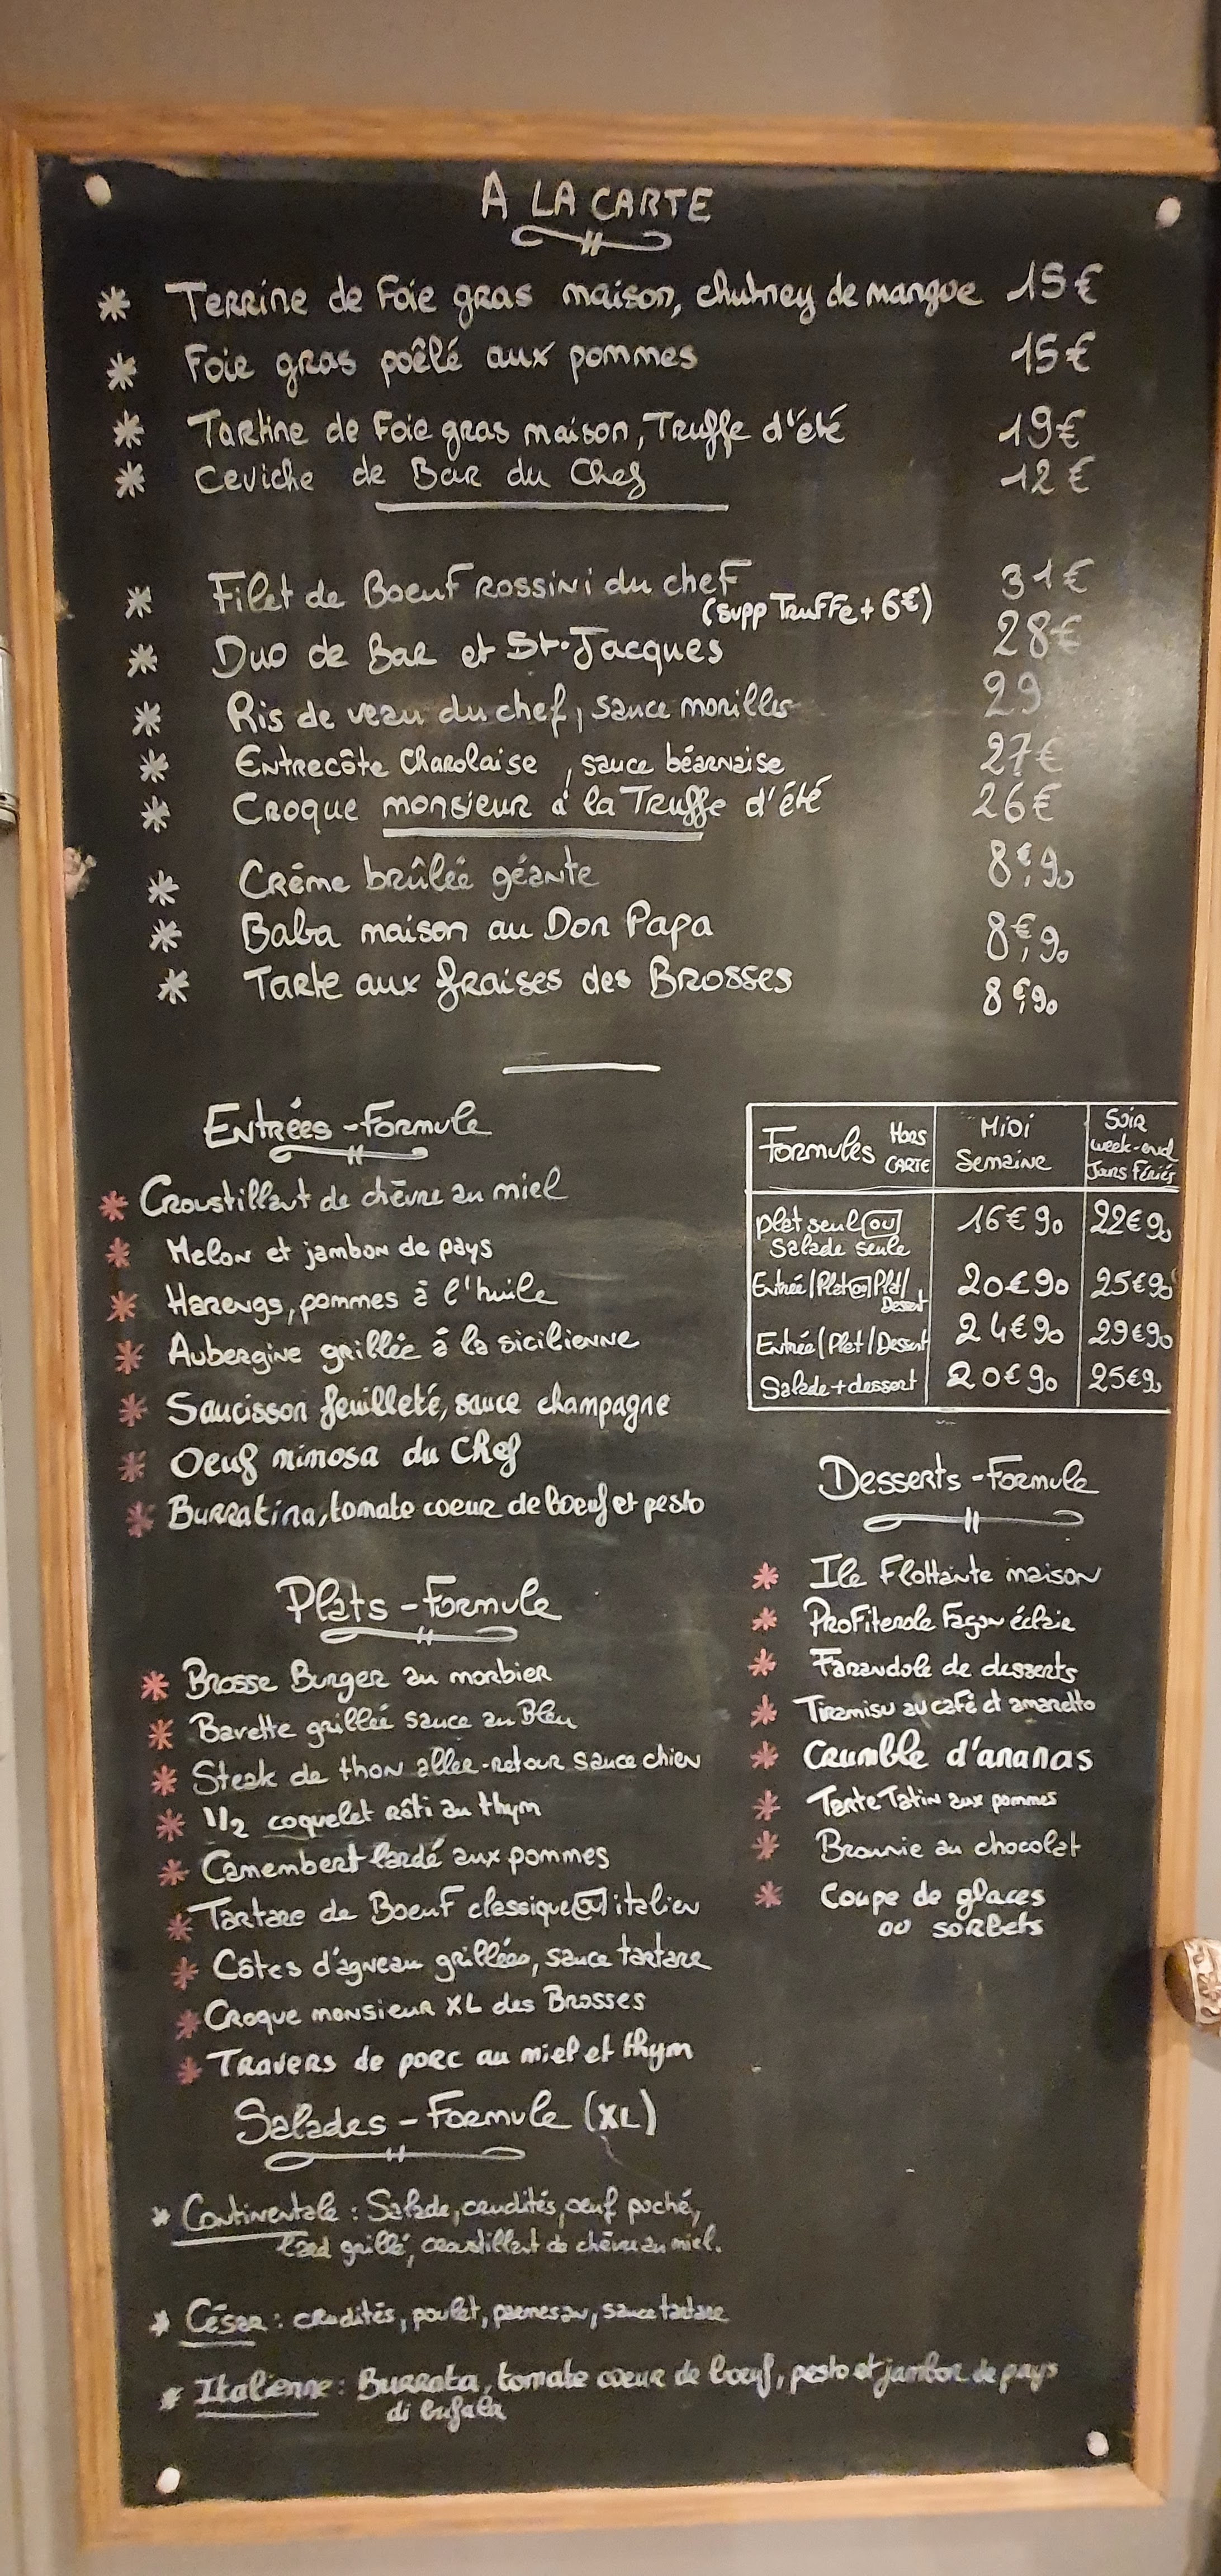 A LA CARTE
* Terrine de Foie gras maison, chutney de mangue 15€
* Foie gras poêlé aux pommes 15€
* Tartine de Foie gras maison, Truffe d'été 19€
* Ceviche de Bar du Chef 12€
* Filet de Boeuf Rossini du chef 31€
(supp Truffe + 6€)
* Duo de Bar et St-Jacques 28€
* Ris de veau du chef, sauce morilles 29
* Entrecôte Charolaise, sauce béarnaise 27€
* Croque monsieur à la Truffe d'été 26€
* Crème brûlée géante 8€,90
* Baba maison au Don Papa 8€,90
* Tarte aux fraises des Brosses 8€,90
Entrées-Formule
* Croustillant de chèvre au miel
* Melon et jambon de pays
* Harengs, pommes à l'huile
* Aubergine grillée à la sicilienne
* Saucisson feuilleté, sauce champagne
* Oeuf mimosa du Chef
* Burratina, tomate coeur de boeuf et pesto
Formules HORS CARTE | Midi Semaine | Soir week-end Jours Fériés
plat seul ou salade seule | 16€90 | 22€90
Entrée/Plat ou Plat/Dessert | 20€90 | 25€90
Entrée/Plat/Dessert | 24€90 | 29€90
Salade+dessert | 20€90 | 25€90
Plats-Formule
* Brosse Burger au morbier
* Bavette grillée sauce au Bleu
* Steak de thon aller-retour sauce chien
* 1/2 coquelet rôti au thym
* Camembert lardé aux pommes
* Tartare de Boeuf classique ou italien
* Côtes d'agneau grillées, sauce tartare
* Croque monsieur XL des Brosses
* Travers de porc au miel et thym
Desserts-Formule
* Ile Flottante maison
* Profiterole Façon éclair
* Farandole de desserts
* Tiramisu au café et amaretto
* Crumble d'ananas
* Tarte Tatin aux pommes
* Brownie au chocolat
* Coupe de glaces
ou sorbets
Salades-Formule (XL)
* Continentale : Salade, crudités, oeuf poché,
lard grillé, croustillant de chèvre au miel.
* César : crudités, poulet, parmesan, sauce tartare
* Italienne : Burrata, tomate coeur de boeuf, pesto et jambon de pays
di bufala